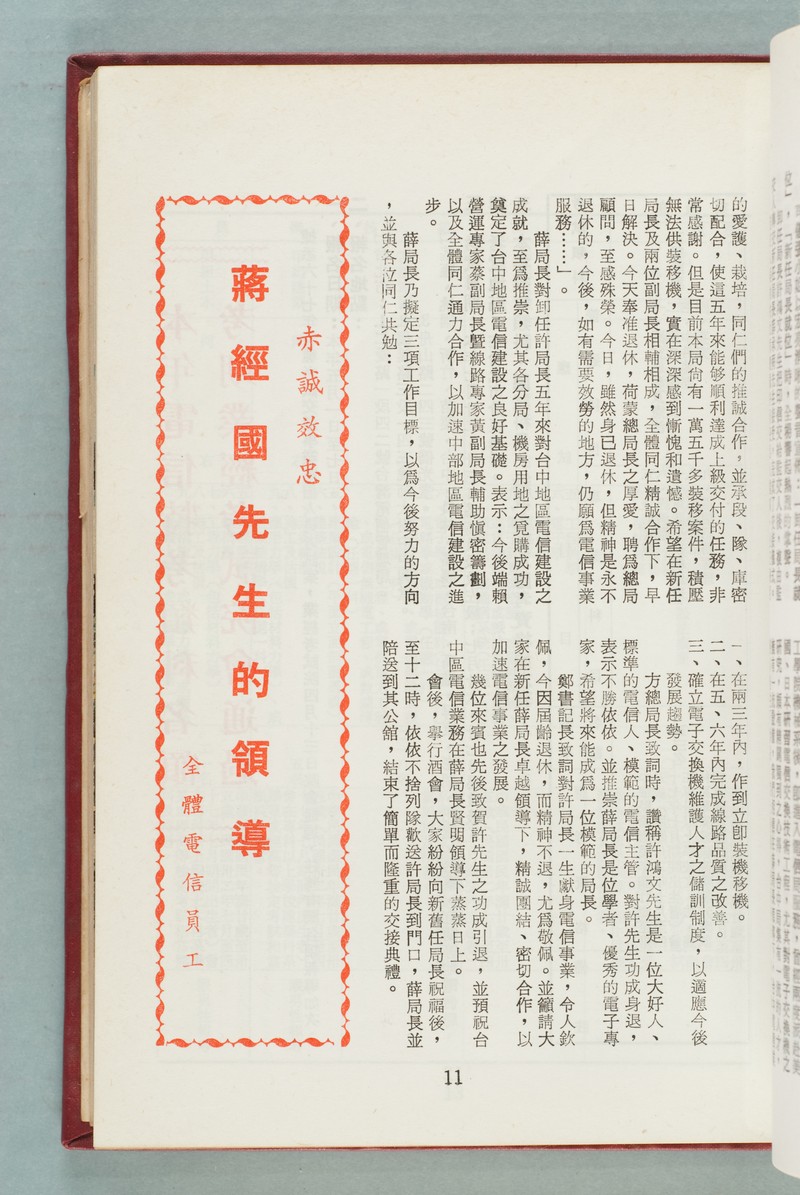 的愛護、栽培,同仁們的推誠合作,並承段、隊、庫密
切配合,使這五年來能够順利達成上級交付的任務,非
常感謝。但是目前本局尙有一萬五千多裝移案件,積壓
無法供裝移機,實在深深感到慚愧和遺憾。希望在新任
局長及兩位副局長相輔相成,全體同仁精誠合作下,早
日解決。今天奉准退休,荷蒙總局長之厚愛,聘爲總局
顧問,至感殊榮。今日,雖然身已退休,但精神是永不
退休的,今後,如有需要效勞的地方,仍願爲電信事業
服務……」。
薛局長對卸任許局長五年來對台中地區電信建設之
成就,至爲推崇,尤其各分局、機房用地之覓購成功,
奠定了台中地區電信建設之良好基礎。表示:今後端賴
營運專家蔡副局長暨線路專家黃副局長輔助愼密籌劃,
以及全體同仁通力合作,以加速中部地區電信建設之進
步。
薛局長乃擬定三項工作目標,以爲今後努力的方向
,並與各位同仁共勉:
一、在兩三年內,作到立卽裝機移機。
二、在五、六年內完成線路品質之改善。
三、確立電子交換機維護人才之儲訓制度,以適應今後
發展趨勢。
方總局長致詞時,讚稱許鴻文先生是一位大好人、
標準的電信人、模範的電信主管。對許先生功成身退,
表示不勝依依。並推崇薛局長是位學者、優秀的電子專
家,希望將來能成爲一位模範的局長。
鄭書記長致詞對許局長一生獻身電信事業,令人欽
佩,今因屆齡退休,而精神不退,尤爲敬佩。並籲請大
家在新任薛局長卓越領導下,精誠團結、密切合作,以
加速電信事業之發展。
幾位來賓也先後致賀許先生之功成引退,並預祝台
中區電信業務在薛局長賢明領導下蒸蒸日上。
會後,擧行酒會,大家紛紛向新舊任局長祝福後,
至十二時,依依不捨列隊歡送許局長到門口,薛局長並
陪送到其公舘,結束了簡單而隆重的交接典禮。
赤誠效忠
蔣經國先生的領導
全體電信員工
11